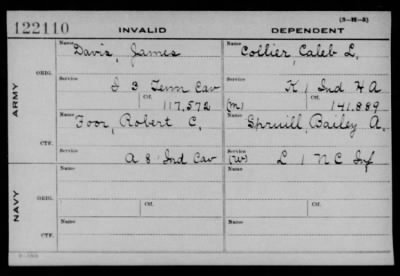 (3-H-3)
122110 INVALID DEPENDENT
Name Davis, James Name Collier, Caleb L.
ARMY ORIG. Service I 3 Tenn Cav Service K 1 Ind H A
Ctf. 117,572 (M) Ctf. 141.889
Name Foor, Robert C. Name Spruill, Bailey A.
CTF. Service A 8 Ind Cav Service (W) L 1 N C Inf
NAVY ORIG. Name Name
Service Ctf. Service Ctf.
CTF. Name Name